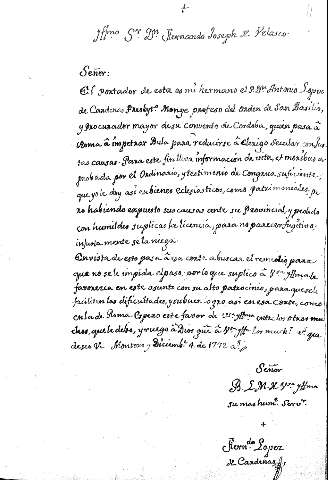 Yllmo. Sr. Dn. Fernando Joseph de Velasco
Señor:
El portador de esta es mi hermano el P. Dn. Antonio Lopez
de Cardenas Presbyto. Monge profeso del Orden de San Basilio,
y Procurador mayor de su Convento de Cordoba, quien pasa à
Roma à impetrar Bula para reducirse à Clerigo Secular con jus
tas causas. Para este fin lleva informacion de vita, et moribus a
probada por el Ordinario, y testimonio de Congrua suficiente,
que yo le doy asi en bienes eclesiasticos, como patrimoniales, pe
ro habiendo expuesto sus causas ante su Provincial, y pedido
con humildes suplicas la licencia, para no parecer fugitivo
injuriamente se la niega.
En vista de esto pasa à esa corte a buscar el remedio para
que no se le impida el paso. por lo que suplico à Vra. Yllma. le
favorezca en este asunto con su alto patrocinio, para que se le
faciliten las dificultades, y su buen logro asi en esa Corte, como
en la de Roma. Espero este favor de Vra. Yllma. entre los otros mu
chos, que le debo, y ruego à Dios gue. à Vra. Yllma. los muchs. as. que
deseo. Montoro y Diciembe. 4. de 1772 as.
Señor
B. L. M. de Vra. Yllma.
su mas humde. Servor.
+
Ferndo. Lopez
de Cardenas